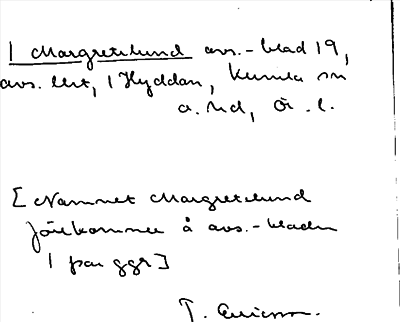 1 Margretelund avs.-blad 19,
avs. litt, 1 Hyddan, Kumla sn
a. hd, Ör. l.
[Namnet Margretelund
förekommer å avs.-bladen
1 par ggr]
T. Ericsson.